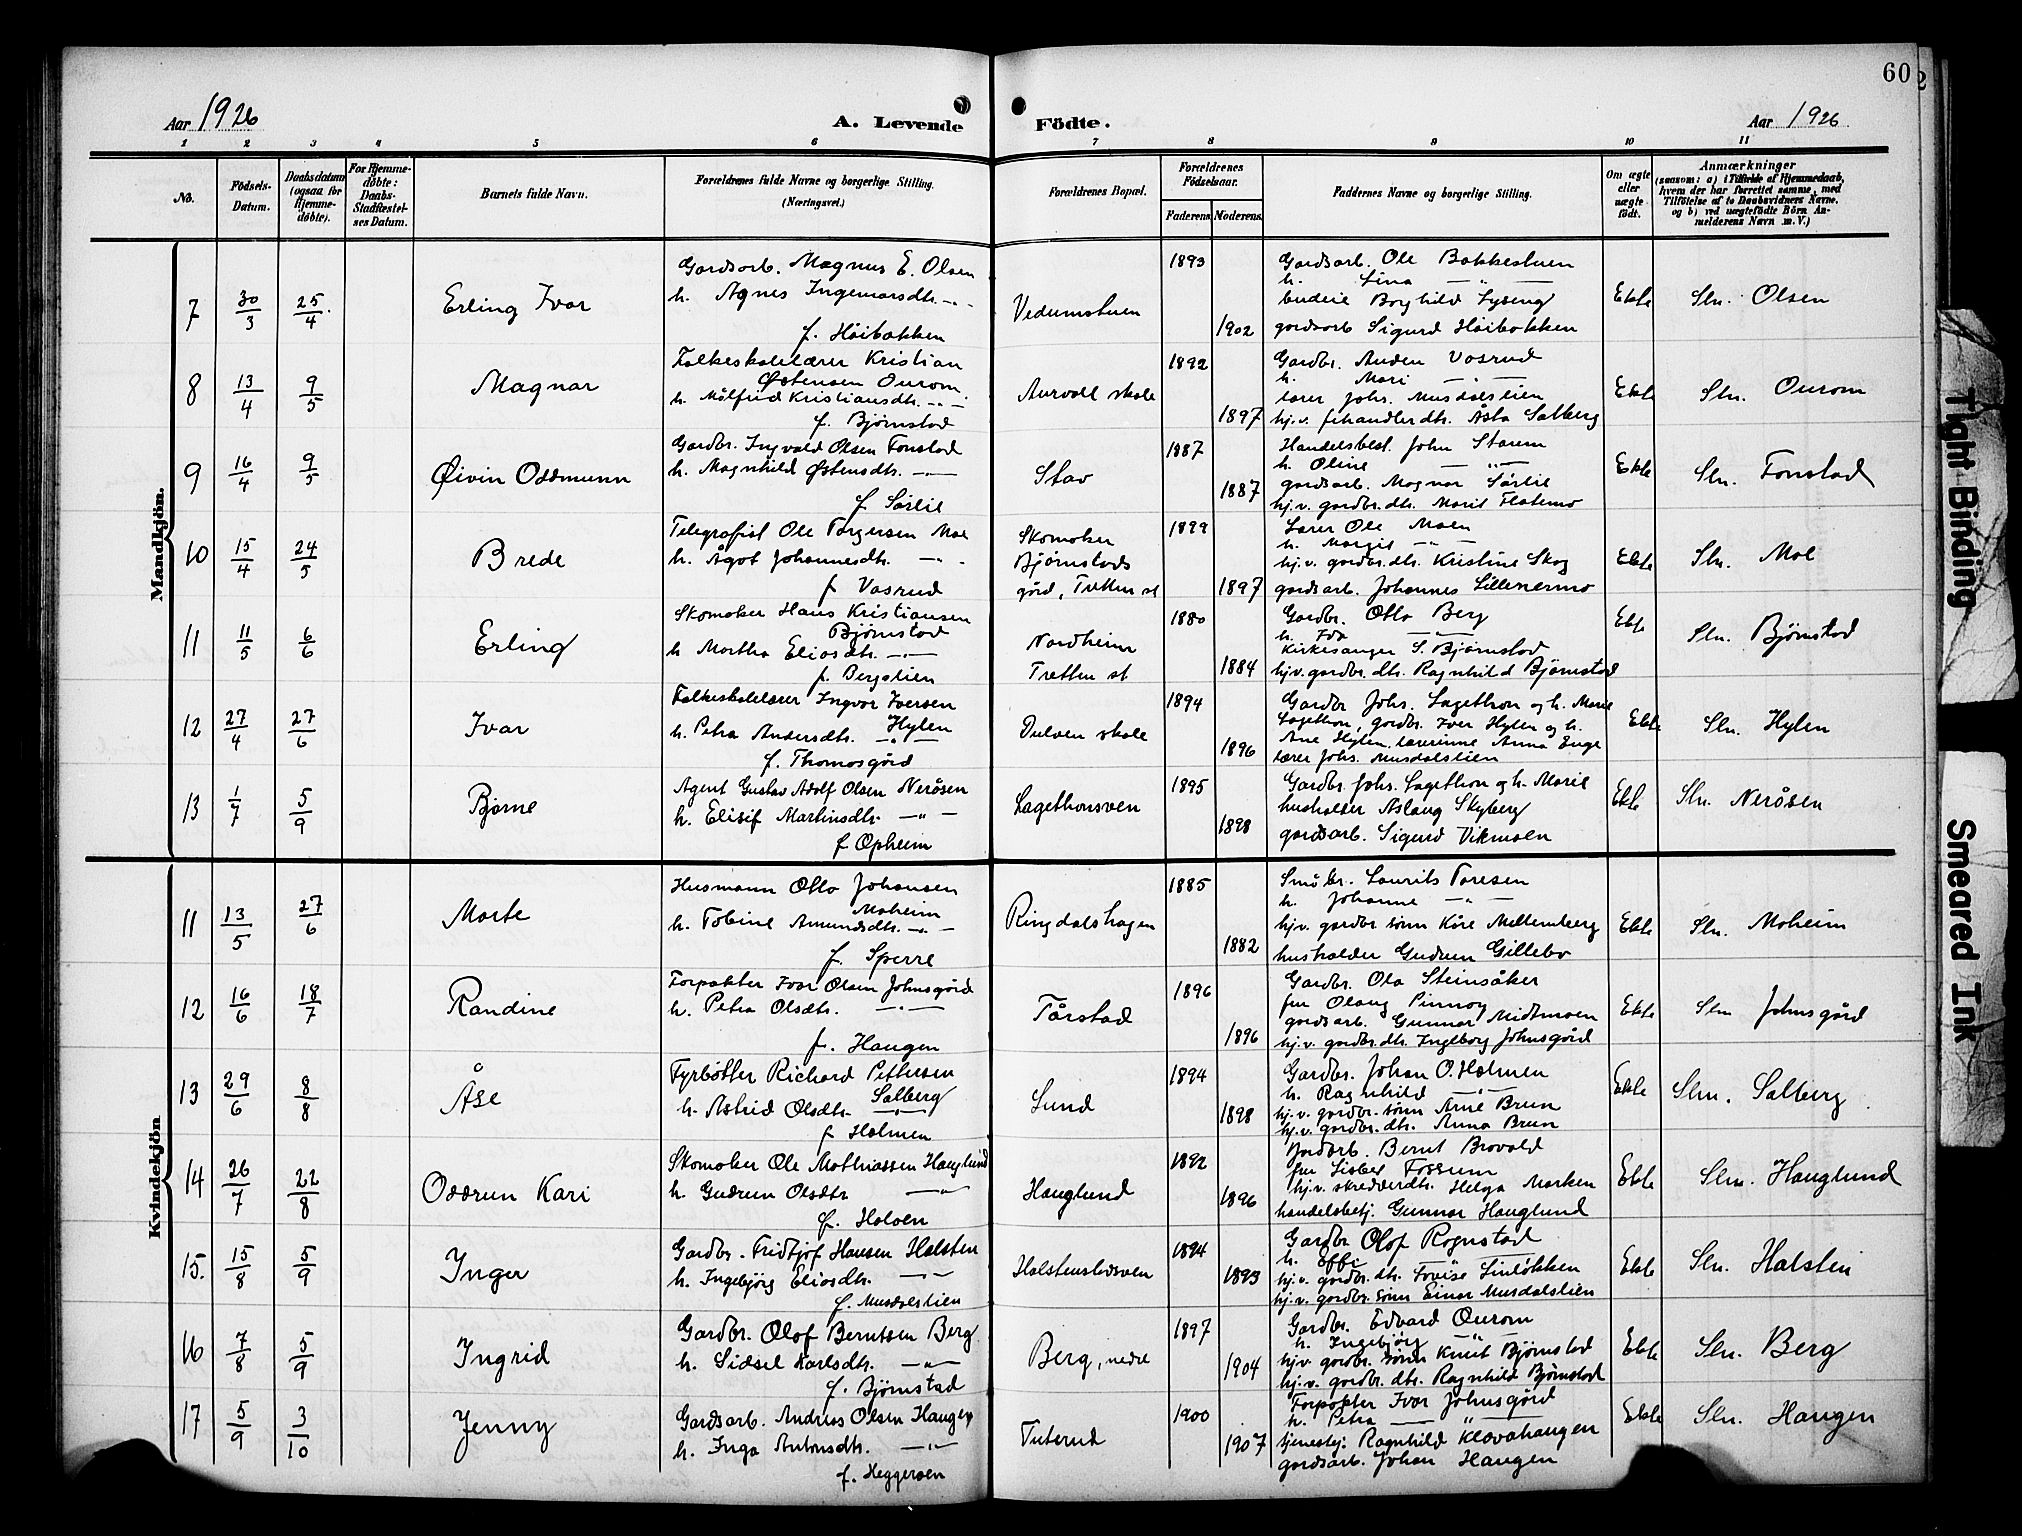 60
2
Aar 1926
A. Levende Födte.
Aar 1926
1 2 3 4 5 6 7 8 9 10 11
No.
Födsels-Datum.
Daabsdatum (ogsaa for Hjemmedøbte).
For Hjemmedøbte: Daabs-Stadfæstelses Datum.
Barnets fulde Navn.
Forældrenes fulde Navne og borgerlige Stilling.
(Næringsvei.)
Forældrenes Bopæl.
Forældrenes Födselsaar.
Faderens. Moderens.
Faddernes Navne og borgerlige Stilling.
Om ægte eller uægte födt.
Anmærkninger
(saasom: a) i Tilfælde af Hjemmedaab, hvem der har forrettet samme, med Tilföielse af to Daabsvidners Navne, og b) ved uægtefödte Börn Anmelderens Navn m. V.)
Mandkjön.
7 30/3 25/4 Erling Ivar
Gardsarb. Magnus E. Olsen
h. Agnes Ingemarsdtr. -"-
f. Høibakken
Vedumstuen
1893
1902
Gardsarb. Ole Bakkestuen
h. Lina -"-
budeie Borghild Lyseng
gardsarb Sigurd Høibakken
Ekte
Sln. Olsen
8 13/4 9/5 Magnar
Folkeskolelærer Kristian
Østensen Ourom
h. Målfrid Kristiansdtr. -"-
f. Bjørnstad
Aurvoll skole
1892
1897
Gardbr. Anden Vasrud
h. Mari -"-
lærer Johs. Musdalslien
hj.v. fehandlerdtr. Åsta Salberg
Ekte
Sln. Ourom
9 16/4 9/5 Øivin Oddmunn
Gardbr. Ingvald Olsen Fonstad
h. Magnhild Østensdtr. -"-
f. Sørlie
Stav
1887
1887
Handelsbest. John Starem
h. Oline -"-
gardsarb. Magnar Sørlie
hj.v. gardbr.dtr. Marit Flatemo
Ekte
Sln. Fonstad
10 15/4 24/5 Brede
Telegrafist Ole Torgersen Moe
h. Ågot Johannesdtr. -"-
f. Vasrud
Skomaker
Bjørnstads
gård, Tretten st
1899
1897
Lærer Ole Moen
h. Margit -"-
hj.v. gardbr.dtr. Kristine Skog
gardsarb. Johannes Lillenermo
Ekte
Sln. Moe
11 11/5 6/6 Erling
Skomaker Hans Kristiansen
Bjørnstad
h Martha Eliasdtr. -"-
f. Bergslien
Nordheim
Tretten st
1880
1884
Gardbr. Otto Berg
h. Ida -"-
Kirkesanger S. Bjørnstad
hj.v. gardbr. dtr. Ragnhild Bjørnstad
Ekte
Sln. Bjørnstad
12 27/4 27/6 Ivar
Folkeskolelærer Ingvar Iversen
Hylen
h. Petra Andersdtr. -"-
f. Thomasgård
Dulven skole
1894
1896
Gardbr Johs. Lagethon og h. Marie
Lagethon, gardbr. Iver Hylen og h.
Ane Hylen, lærerinne Anna Enge
lærer Johs. Musdalslien
Ekte
Sln. Hylen
13 1/7 5/9 Bjørne
Agent Gustav Adolf Olsen Neråsen
h. Elisif Martinsdtr. -"-
f Opheim
Lagethonsven
1895
1898
Gardbr. Johs. Lagethon og h. Marie
husholder Aslaug Skyberg
gardsarb. Sigurd Vikmoen
Ekte
Sln. Neråsen
Kvindekjön
11 13/5 27/6 Marte
Husmann Otto Johansen
Moheim
h. Tobine Amundsdtr. -"-
f. Sperre
Ringdalshagen
1885
1882
Småbr. Laurits Toresen
h. Johanne -"-
hj.v. gardbr sønn Kåre Mellemberg
husholder Gudrun Gillebo
Ekte
Sln. Moheim
12 16/6 18/7 Randine
Forpakter Ivar Olsen Johnsgård
h. Petra Olsdtr. -"-
f. Haugen
Tårstad
1896
1896
Gardbr. Ola Steinsåker
fru Olaug Pinnoy
gardsarb. Gunnar Midtmoen
hj.v. gardbr.dtr. Ingeborg Johnsgård
Ekte
Sln Johnsgård
13 29/6 8/8 Åse
Fyrbøter Richard Pettersen
Salberg
h. Astrid Olsdtr. -"-
f Holmen
Lund
1894
1898
Gardbr. Johan O. Holmen
h. Ragnhild -"-
hj.v. gardbr. sønn Arne Brun
hj.v. gardbr. dtr. Anna Brun
Ekte
Sln. Salberg
14 26/7 22/8 Oddrun Kari
Skomaker Ole Mathiassen Hauglund
h. Gudrun Olsdtr -"-
f. Holoen
Hauglund
1892
1896
Jordarb. Bernt Brovold
fru Lisbet Fossum
hj.v. skredderdtr. Helga Marken
handelsbetj. Gunnar Hauglund
Ekte
Sln. Hauglund
15. 15/8 5/9 Inger
Gardbr. Fridtjof Hansen Halsten
h. Ingebjørg Eliasdtr. -"-
f. Musdalslien
Halstenstadsven
1894
1893
Gardbr Olof Rognstad
h. Effie -"-
hj.v. gardbr. dtr. Tovise Linløkken
hj.v. gardbr. sønn Einar Musdalslien
Ekte
Sln. Halsten
16 7/8 5/9 Ingrid
Gardbr. Olof Berntsen Berg
h. Sidsel Karlsdtr. -"-
f. Bjørnstad
Berg, nedre
1897
1904
Gardbr. Edvard Ourom
h. Ingebjørg -"-
hj.v. gardbr. sønn Knut Bjørnstad
hj.v. gardbr. dtr. Ragnhild Bjørnstad
Ekte
Sln. Berg
17 5/9 3/10 Jenny
Gardsarb. Andreas Olsen Haugen
h. Inga Antonsdtr. -"-
f. Heggeroen
Tuterud
1900
1907
Forpakter Ivar Johnsgård
h. Petra -"-
tjenestej. Ragnhild Klevahaugen
gardsarb. Johan Haugen
Ekte
Sln. Haugen
Tight Binding
Smeared Ink